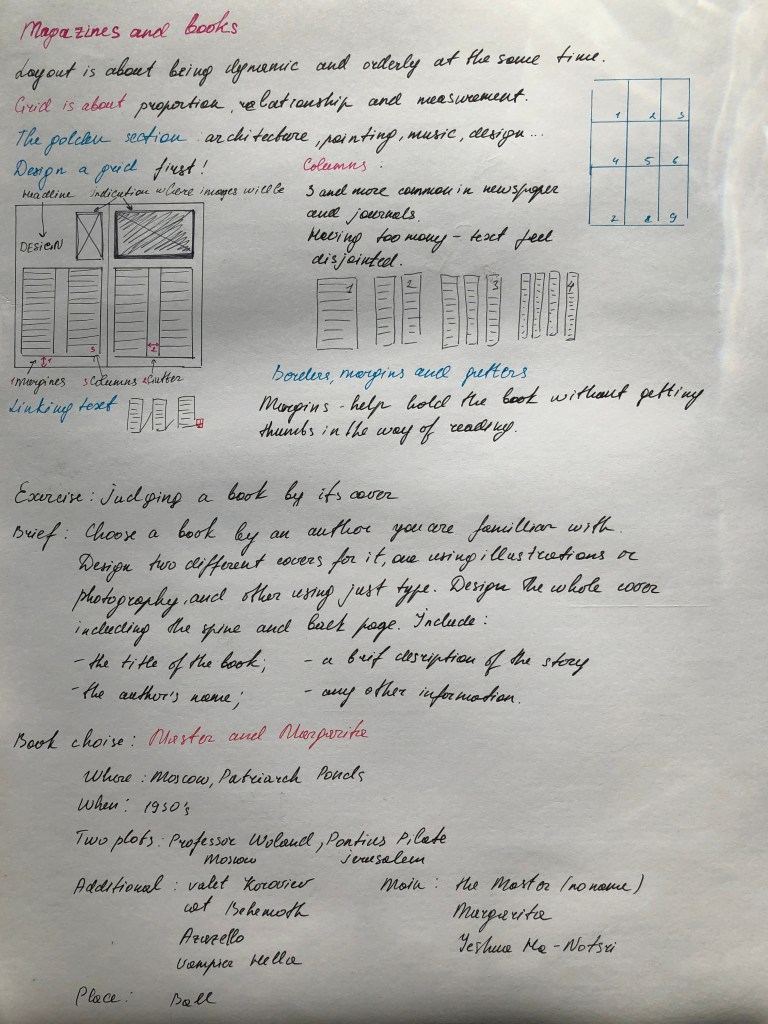 Magazines and books
Layout is about being dynamic and orderly at the same time.
Grid is about proportion, relationship and measurement.
The golden section architecture, painting, music, design...
Design a grid first!
Headline indication where images will be
DESIGN
3
2
1
1 Margines 3 Columns 2 Gutter
Linking text
1 2 3
4 5 6
2 8 9
Columns :
3 and more common in newspaper
and journals.
Having too many - text feel
disjointed.
1 2 3 4
Borders, margins and gutters
Margins - help hold the book without getting
thumbs in the way of reading.
Exercise: Judging a book by its cover
Brief: Choose a book by an author you are familliar with.
Design two different covers for it, one using illustrations or
photography, and other using just type. Design the whole cover
including the spine and back page. Include:
- the title of the book; - a brif desription of the story
- the author's name; - any other information.
Book choise: Master and Margarita
Where : Moscow, Patriarch Ponds
When: 1930's
Two plots: Professor Woland, Pontius Pilate
Moscow Jerusalem
Additional : valet Koroviev Main : the Master (no name)
cat Behemoth Margarita
Azazello Yeshua Ha-Notsri
Vampier Hella
Place: Ball